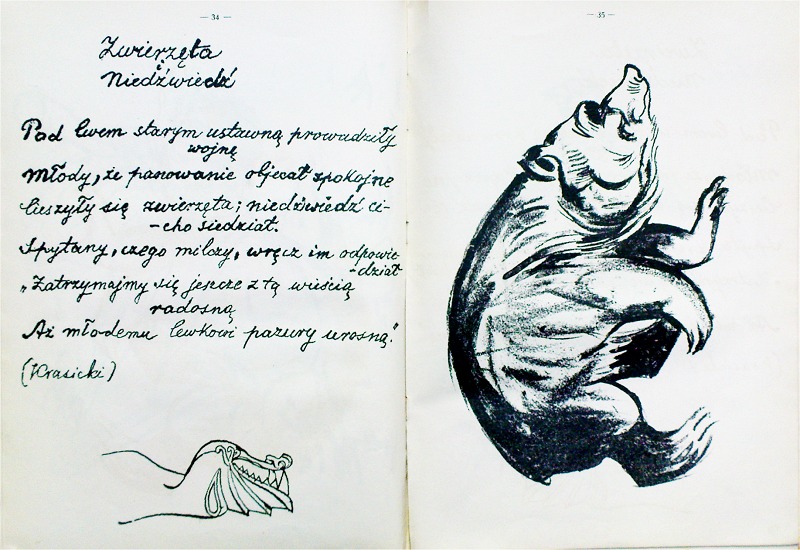 — 34 —
Zwierzęta
i
Niedźwiedź
Pod lwem starym ustawną prowadziły
wojnę
Młody, że panowanie objecał spokojne
Cieszyły się zwierzęta; niedźwiedź ci-
-cho siedział.
Spytany, czego milczy, wręcz im odpowie-
-dział
„Zatrzymajmy się jeszcze z tą wieścią
radosną
Aż młodemu lewkowi pazury urosną."
(Krasicki)
— 35 —